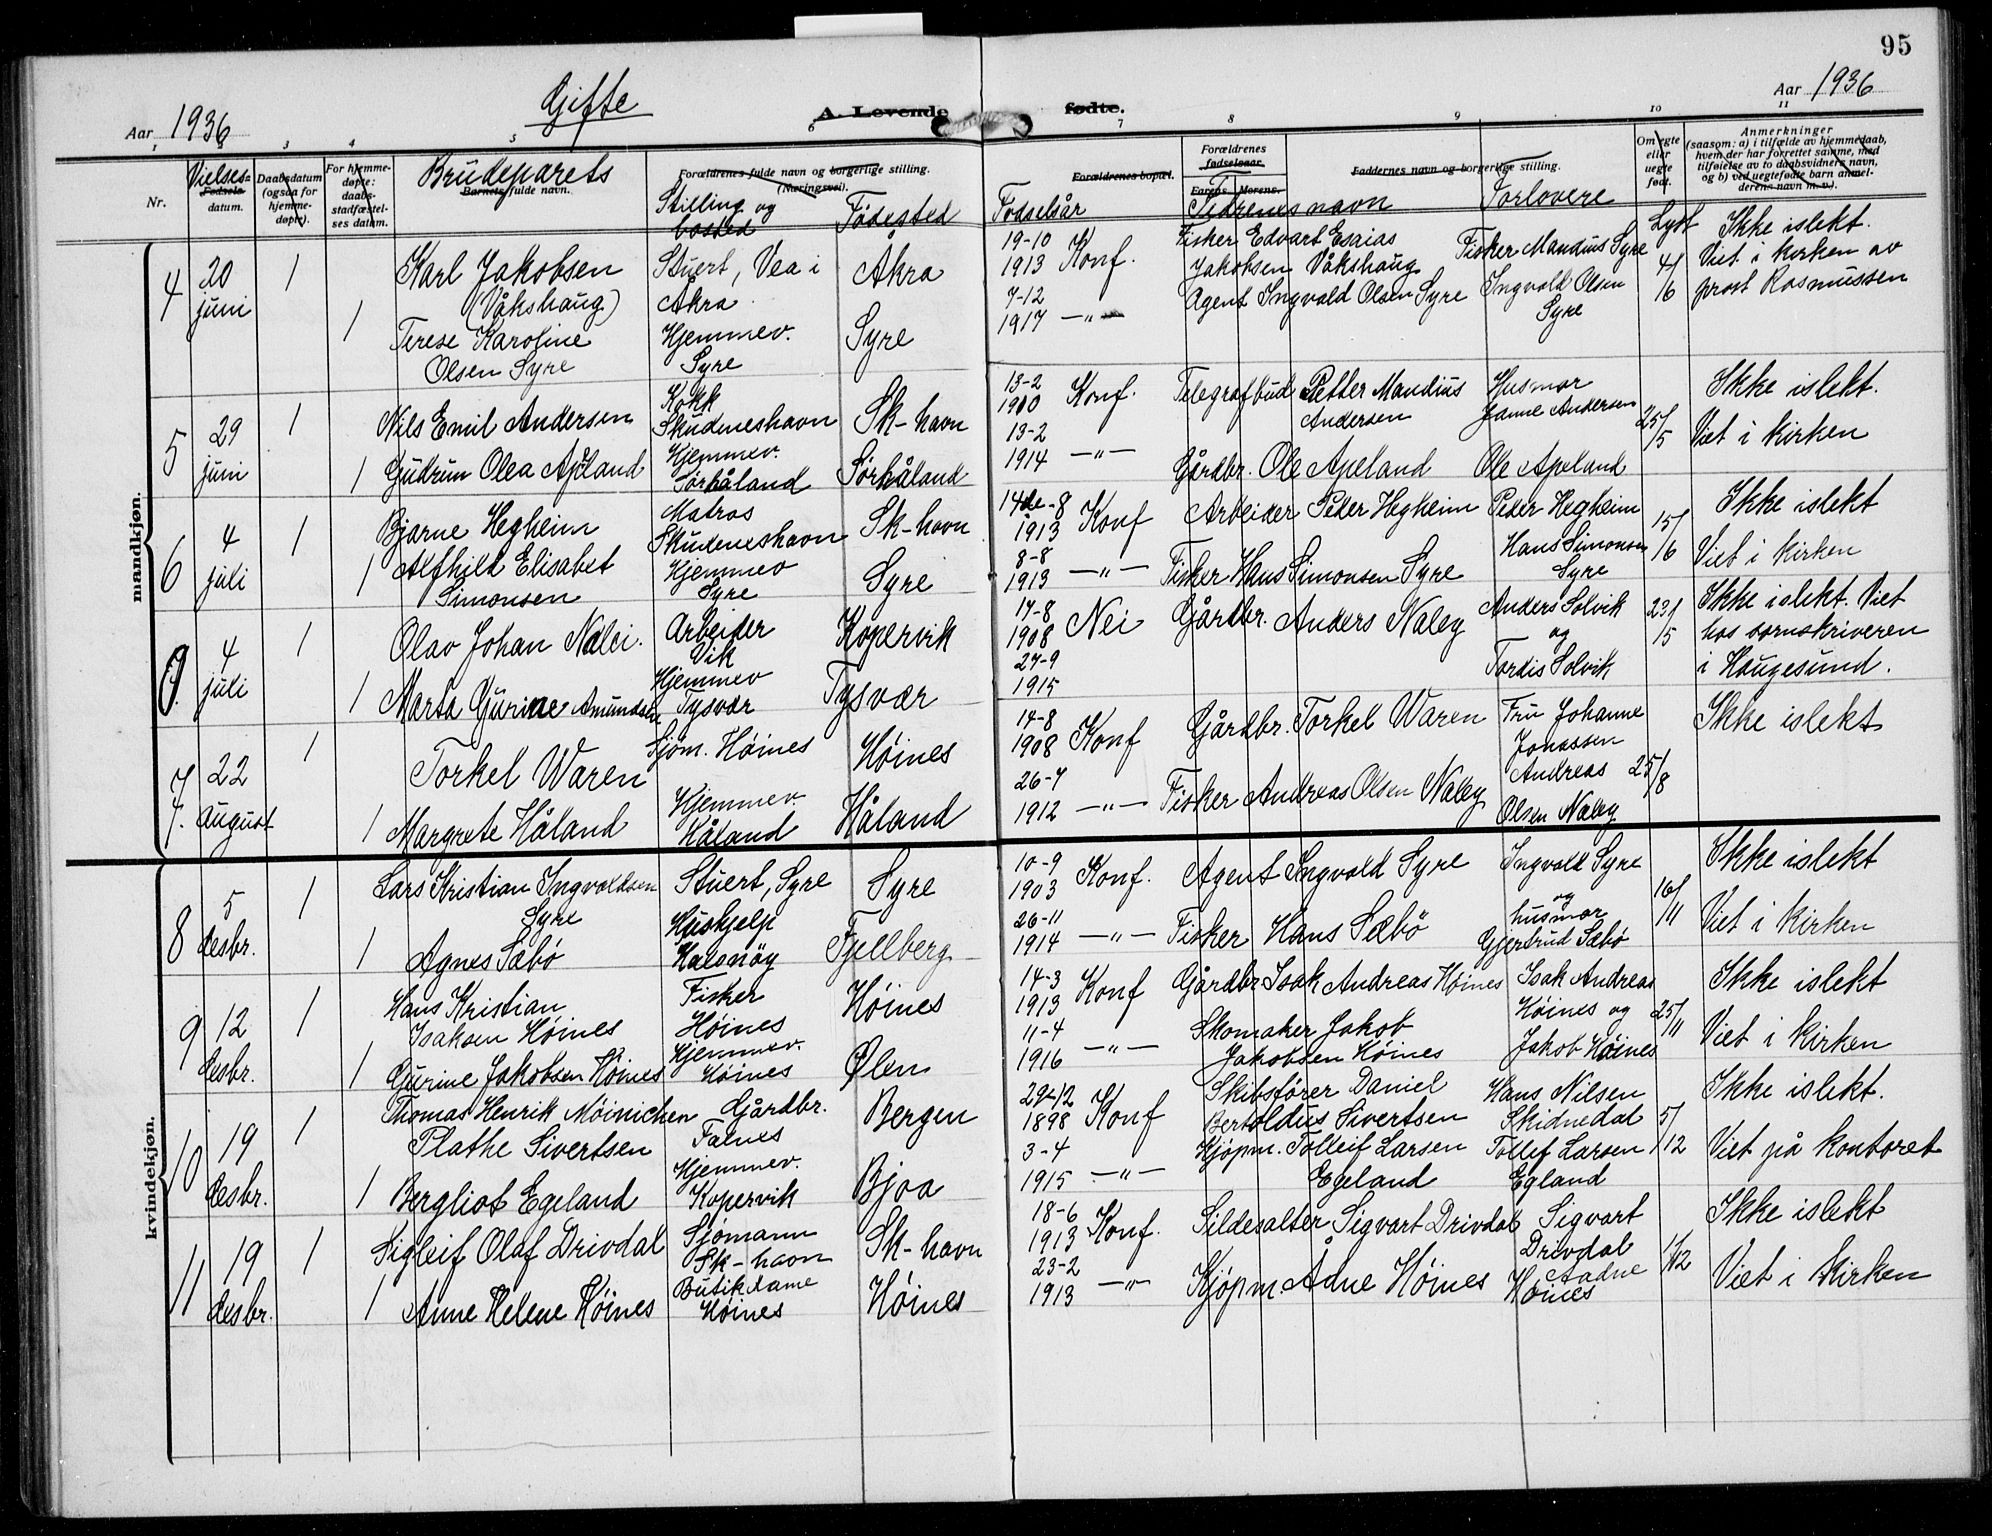 95
Gifte
A. Levende fødte.
Aar 1936
Aar 1936
1 2 3 4 5 6 7 8 9 10 11
Nr.
Vielses-
Fødsels-
datum.
Daabsdatum
(ogsaa for
hjemme-
døpte).
For hjemme-
døpte:
daabs-
stadfæstel-
ses datum.
Brudeparets
Barnets fulde navn.
Forældrenes fulde navn og borgerlige stilling.
(Næringsvei).
Stilling og
bosted
Fødested
Forældrenes bopæl.
Fødselsår
Forældrenes
fødselsaar.
Farens. Morens.
Fedrenes navn
Faddernes navn og borgerlige stilling.
Forlovere
Om egte
eller
uegte
født.
Lyst
Anmerkninger
(saasom: a) i tilfælde av hjemmedaab,
hvem der har forrettet samme, med
tilføielse av to daabsvidners navn,
og b) ved uegtefødte barn anmel-
derens navn m. v.).
mandkjøn.
4 20 juni 1 Karl Jakobsen (Våkshaug) Stuert, Vea i Åkra Åkra 19-10 1913 Konf. Fisker Edvart Esaias Jakobsen Våkshaug Fisker Mandius Syre 4/6 Ikke islekt. Viet i kirken av prost Rasmussen
1 Terese Karoline Olsen Syre Hjemmev. Syre Syre 7-12 1917 —"— Agent Ingvald Olsen Syre Ingvald Olsen Syre
5 29 juni 1 Nils Emil Andersen Kokk Skudeneshavn Sk-havn 13-2 1910 Konf. Telegrafbud Petter Mandius Andersen Husmor Janne Andersen 25/5 Ikke islekt. Viet i kirken
1 Gudrun Olea Apeland Hjemmev. Sørhåland Sørhåland 13-2 1914 —"— Gårdbr. Ole Apeland Ole Apeland
6 4 juli 1 Bjarne Hegheim Matros Skudeneshavn Sk-havn 14de-8 1913 Konf Arbeider Peder Hegheim Peder Hegheim 15/6 Ikke islekt Viet i kirken
1 Alfhild Elisabet Simonsen Hjemmev Syre Syre 8-8 1913 —"— Fisker Hans Simonsen Syre Hans Simonsen Syre
4 juli 1 Olav Johan Nålei. Arbeider Vik Kopervik 17-8 1908 Nei Gårdbr. Anders Naley Anders Solvik og 23/5 Ikke islekt. Viet hos sornskriveren i Haugesund.
1 Marta Gurine Amundsen Hjemmev Tysvær Tysvær 27-9 1915 Tordis Solvik
7. 22 august 1 Torkel Waren Sjøm. Høines Høines 14-8 1908 Konf Gårdbr. Torkel Waren Fru Johanne Jonassen 25/8 Ikke islekt
1 Margrete Håland Hjemmev. Håland Håland 26-7 1912 —"— Fisker Andreas Olsen Naley Andreas Olsen Naley
kvindekjøn.
8 5 desbr. 1 Lars Kristian Ingvaldsen Syre Stuert, Syre Syre 10-9 1903 Konf. Agent Ingvald Syre Ingvald Syre og 16/11 Ikke islekt Viet i kirken
1 Agnes Sæbø Huskjelp Halsnøy Fjellberg 26-11 1914 —"— Fisker Hans Sæbø husmor Gjertrud Sæbø
9 12 desbr. 1 Hans Kristian Isaksen Høines Fisker Høines Høines 14-3 1913 Konf Gårdbr Isak Andreas Høines Isak Andreas Høines og 25/11 Ikke islekt Viet i kirken
1 Gurine Jakobsen Høines Hjemmev. Høines Ølen 11-4 1916 —"— Skomaker Jakob Jakobsen Høines Jakob Høines
10 19 desbr. 1 Thomas Henrik Møinichen Plathe Sivertsen Gårdbr. Falnes Bergen 29-12 1898 Konf Skibsfører Daniel Bertoldus Sivertsen Hans Nilsen Skidnedal 5/12 Ikke islekt. Viet på kontoret
1 Bergliot Egeland Hjemmev. Kopervik Bjoa 3-4 1915 —"— Kjøpm. Tolleif Larsen Egeland Tollef Larsen Egland
11 19 desbr. 1 Sigleif Olaf Drivdal Sjømann Sk-havn Sk-havn 18-6 1913 Konf. Sildesalter Sigvart Drivdal Sigvart Drivdal 1/12 Ikke islekt Viet i kirken
1 Anne Helene Høines Butikdame Høines Høines 23-2 1913 —"— Kjøpm. Ådne Høines Aadne Høines